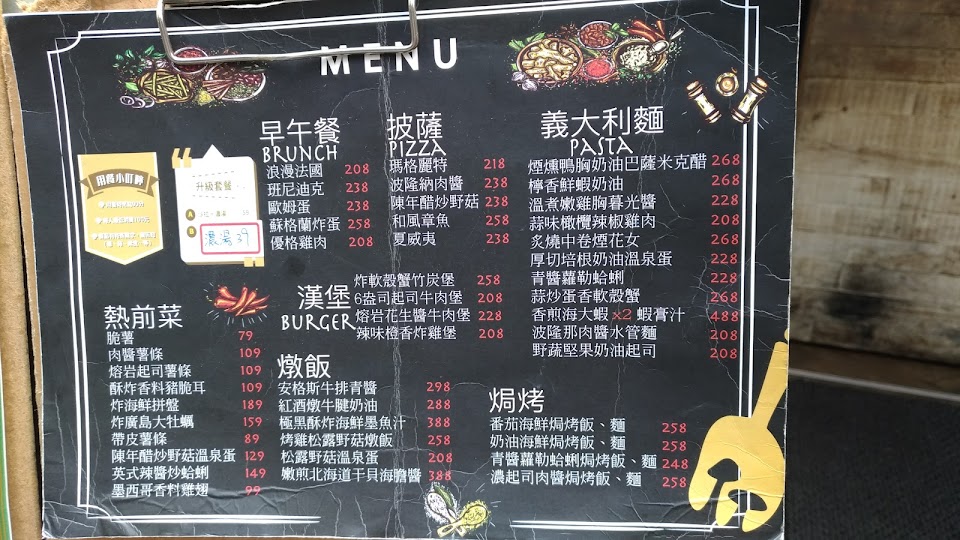 MENU
用餐小叮嚀
升級套餐
A
B
濃湯39
早午餐
BRUNCH
浪漫法國 208
班尼迪克 238
歐姆蛋 238
蘇格蘭炸蛋 258
優格雞肉 208
披薩
PIZZA
瑪格麗特 218
波隆納肉醬 238
陳年醋炒野菇 238
和風章魚 258
夏威夷 238
義大利麵
PASTA
煙燻鴨胸奶油巴薩米克醋 268
檸香鮮蝦奶油 268
溫煮嫩雞胸暮光醬 228
蒜味橄欖辣椒雞肉 208
炙燒中卷煙花女 268
厚切培根奶油溫泉蛋 228
青醬蘿勒蛤蜊 228
蒜炒蛋香軟殼蟹 268
香煎海大蝦 x2 蝦膏汁 488
波隆那肉醬水管麵 208
野蔬堅果奶油起司 208
熱前菜
脆薯 79
肉醬薯條 109
熔岩起司薯條 109
酥炸香料豬脆耳 109
炸海鮮拼盤 189
炸廣島大牡蠣 159
帶皮薯條 89
陳年醋炒野菇溫泉蛋 129
英式辣醬炒蛤蜊 149
墨西哥香料雞翅 99
漢堡
BURGER
炸軟殼蟹竹炭堡 258
6盎司起司牛肉堡 208
熔岩花生醬牛肉堡 228
辣味橙香炸雞堡 208
燉飯
安格斯牛排青醬 298
紅酒燉牛腱奶油 288
極黑酥炸海鮮墨魚汁 388
烤雞松露野菇燉飯 258
松露野菇溫泉蛋 208
嫩煎北海道干貝海膽醬 388
焗烤
番茄海鮮焗烤飯、麵 258
奶油海鮮焗烤飯、麵 258
青醬蘿勒蛤蜊焗烤飯、麵 248
濃起司肉醬焗烤飯、麵 258